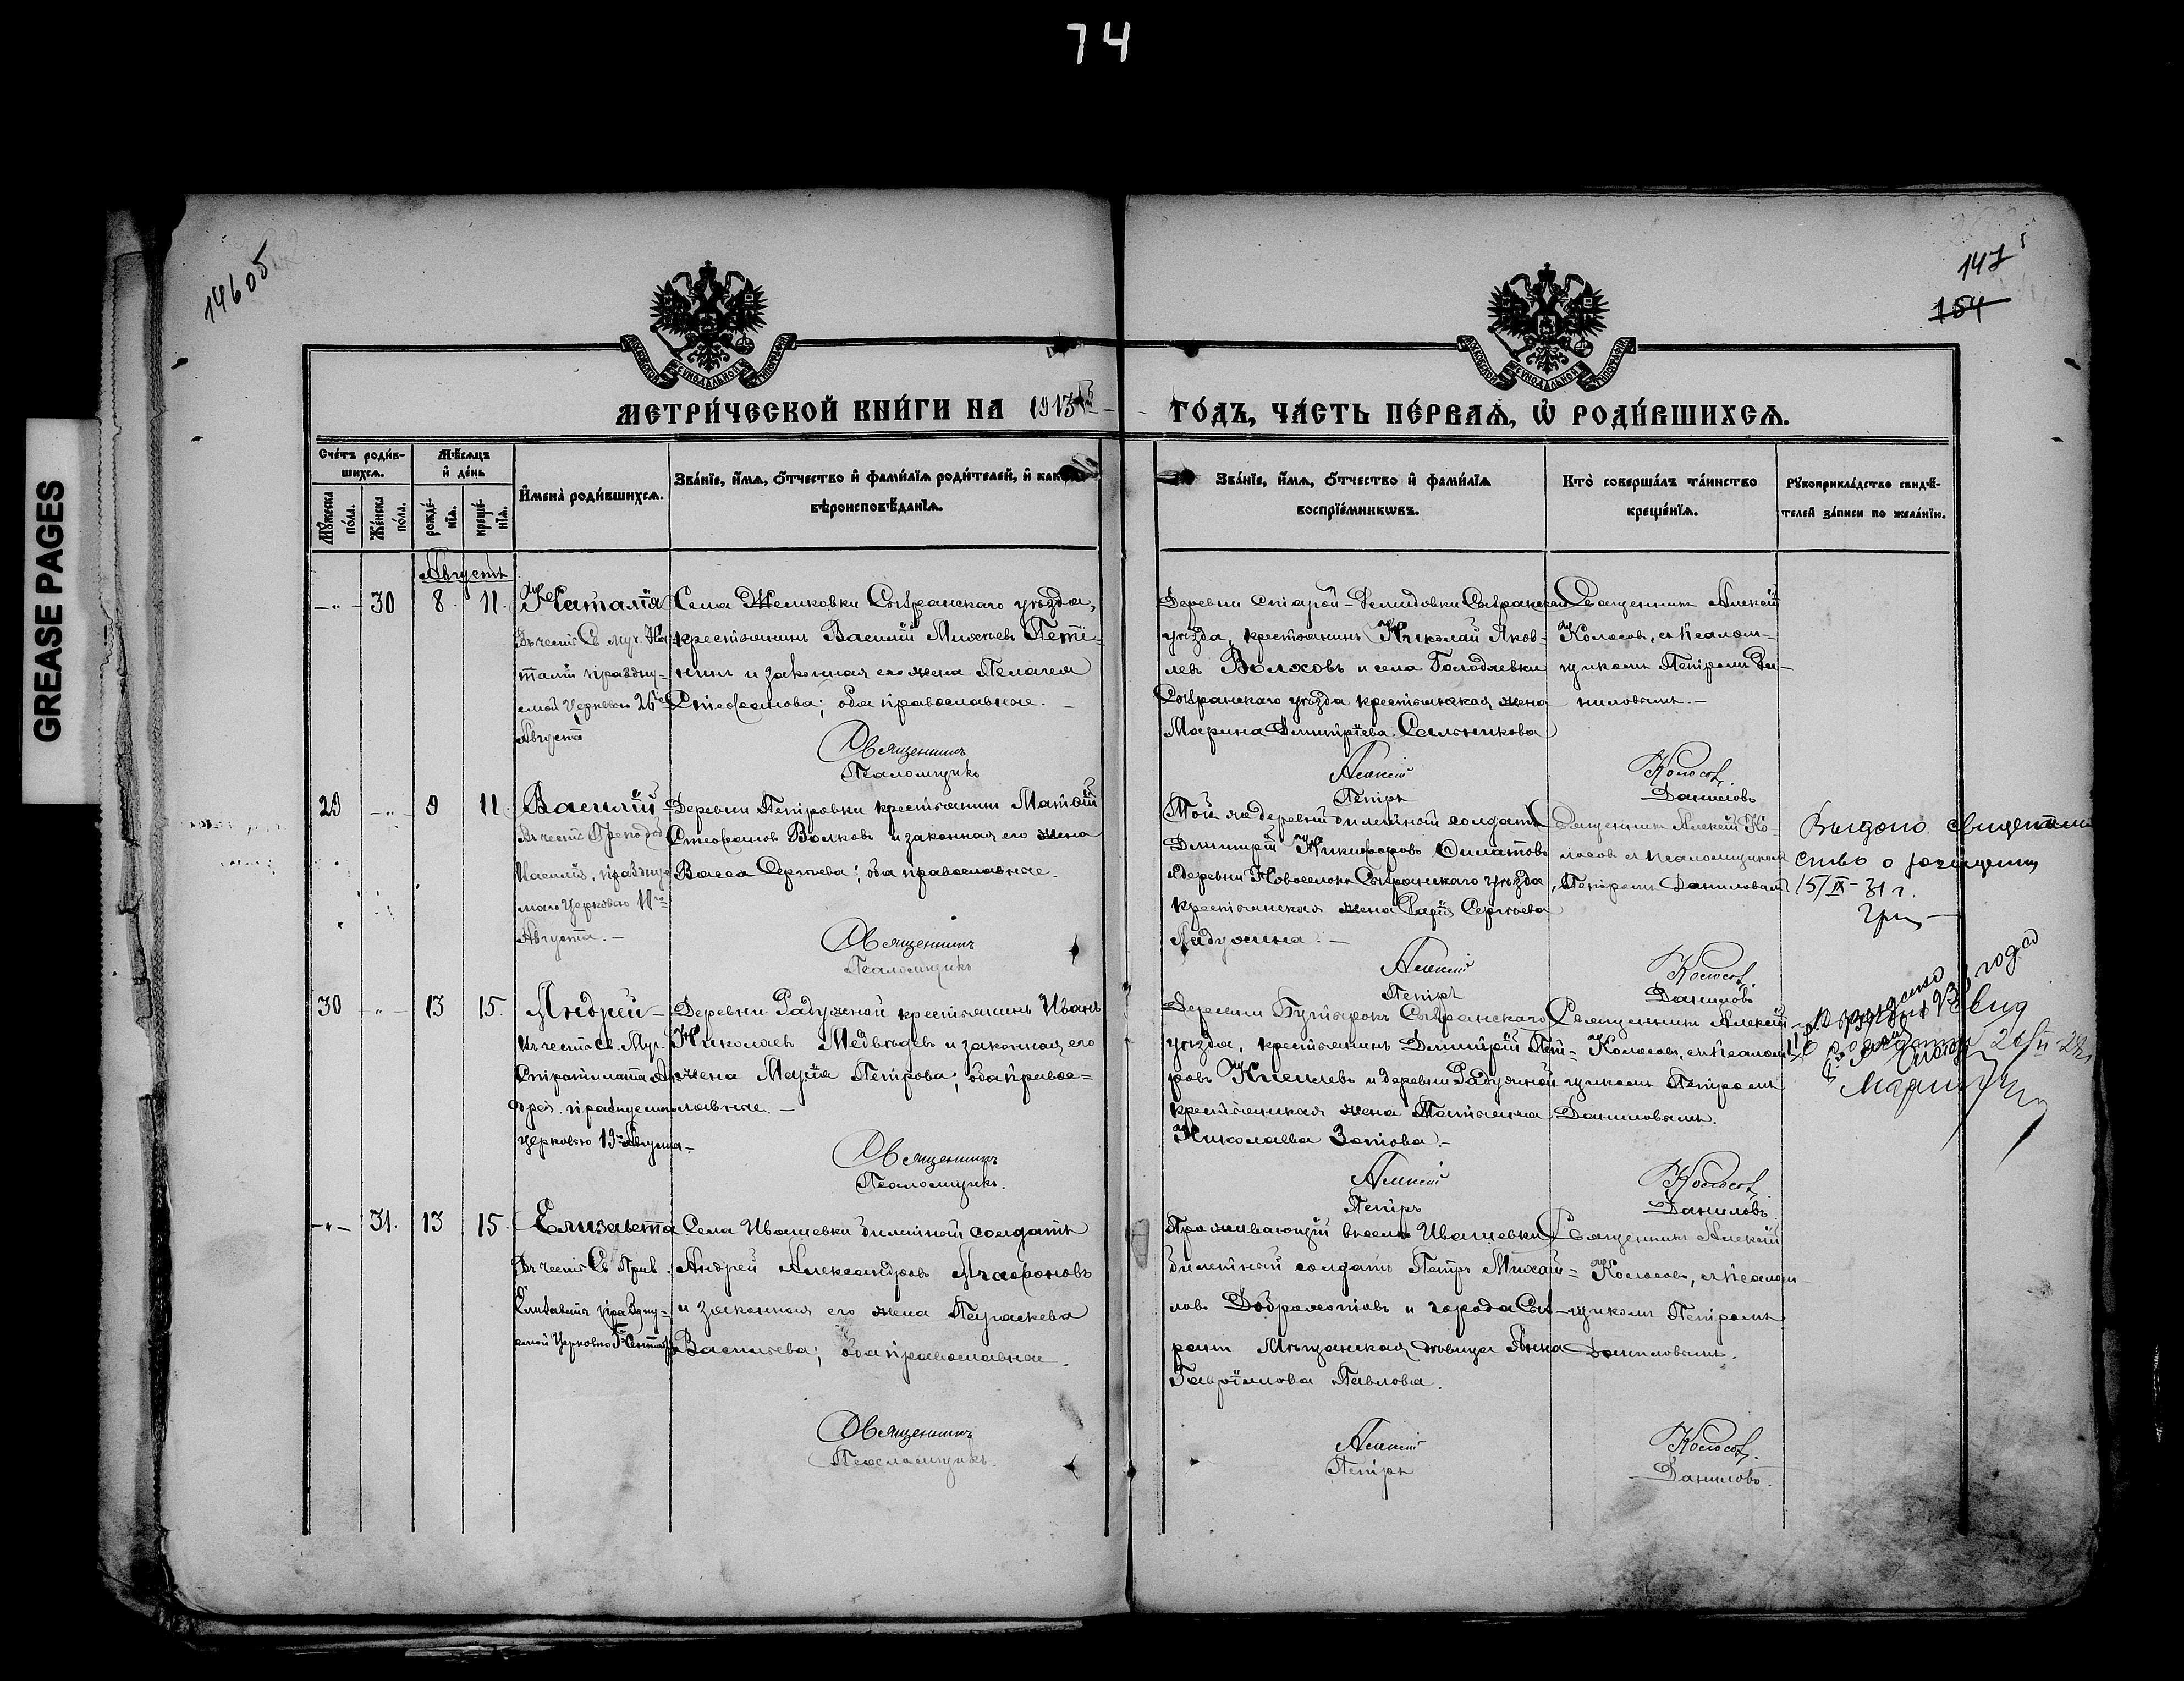 74
GREASE PAGES
14605
147
154
МОСКОВСКОЙ СУНОДАЛЬНОЙ ТИПОГРАФІИ
МОСКОВСКОЙ СУНОДАЛЬНОЙ ТИПОГРАФІИ
МЕТРИ́ЧЕСКОЙ КНИ́ГИ НА 1913 ГО́ДЪ, ЧА́СТЬ ПЕ́РВАѦ, Ѡ҆ РОДИ́ВШИХСѦ.
Сче́тъ роди́в-
шихсѧ.
Мѣ́сѧцъ
и҆ де́нь
Мꙋ́жеска
по́ла.
Же́нска
по́ла.
рожде́-
нїѧ.
креще́-
нїѧ.
И҆мена̀ роди́вшихсѧ.
Зва́нїе, и҆́мѧ, ѻ҆́тчество и҆ фами́лїѧ роди́телей, и҆ како́гѡ
вѣроисповѣ́данїѧ.
Зва́нїе, и҆́мѧ, ѻ҆́тчество и҆ фами́лїѧ
воспрїе́мникѡвъ.
Кто̀ соверша́лъ та́инство
креще́нїѧ.
Рꙋкоприкла́дство свидѣ́-
телей за́писи по жела́нїю.
Августъ
-"- 30 8 11.
Наталія
Въ честь Св. муч. На-
таліи праздну-
емой Церковью 26го
Августа
Села Жемковки Сызранскаго уѣзда,
крестьянинъ Василій
нинъ и законная его жена Пелагея
Стефанова; оба православные. -
Священникъ
Псаломщикъ
Деревни Старой-Демидовки Сызранскаго
уѣзда, крестьянинъ Николай Яков-
левъ Волховъ и села Голодяевки
Сызранскаго уѣзда крестьянская жена
Марина Димитріева Сальникова
Алексій
Петръ
Священникъ Алексій
Колосовъ, съ псалом-
щикомъ Петромъ Да-
ниловымъ. -
Колосовъ.
Даниловъ
29 -"- 9 11.
Василій
Въ честь Преподоб.
Василія, праздну-
маго Церковью 11го
Августа. -
Деревни Петровки крестьянинъ Матѳій
Стефановъ Волковъ и законная его жена
Васса Сергѣева; оба православные.
Священникъ
Псаломщикъ
Той же деревни билетный солдатъ
Димитрій Никифоровъ Филатовъ
и деревни Новоселокъ Сызранскаго уѣзда,
крестьянская жена Дарія Сергѣева
Ладухина. -
Алексій
Петръ
Священникъ Алексій Ко-
лосовъ съ псаломщикомъ
Петромъ Даниловымъ
Колосовъ.
Даниловъ
Выдано свидетель
ство о рождении
15/IX-31 г.
30 -"- 13 15.
Андрей -
Въ честь св. Муч.
Стратилата Ан-
дрея. празднуемаго
церковью 19го Августа -
Деревни Радужной крестьянинъ Иванъ
Николаевъ Медвѣдевъ и законная его
жена Марія Петрова; оба право-
славные. -
Священникъ
Псаломщикъ.
Деревни Бутырокъ Сызранскаго
уѣзда, крестьянинъ Димитрій Пет-
ровъ Киселевъ и деревни Радужной
крестьянская жена Татьяна
Николаева Зотова. -
Алексій
Петръ
Священникъ Алексій
Колосовъ, съ псалом-
щикомъ Петромъ
Даниловымъ.
Колосовъ.
Даниловъ.
-"- 31. 13 15
Елизавета
Въ честь Св. Прав.
Елизаветы праздну-
емой Церковью 5го Сентября
Села Ивашевки билетный солдатъ
Андрей Александровъ Агафоновъ
и законная его жена Параскева
Васильева; оба православные.
Священникъ
Псаломщикъ.
Проживающій въ селѣ Ивашевки
билетный солдатъ Петръ Михай-
ловъ Доброхотовъ и города Сыз-
рани Мѣщанская дѣвица Анна
Гавріилова Павлова.
Алексій
Петръ
Священникъ Алексій
Колосовъ, съ псалом-
щикомъ Петромъ
Даниловымъ.
Колосовъ.
Даниловъ.